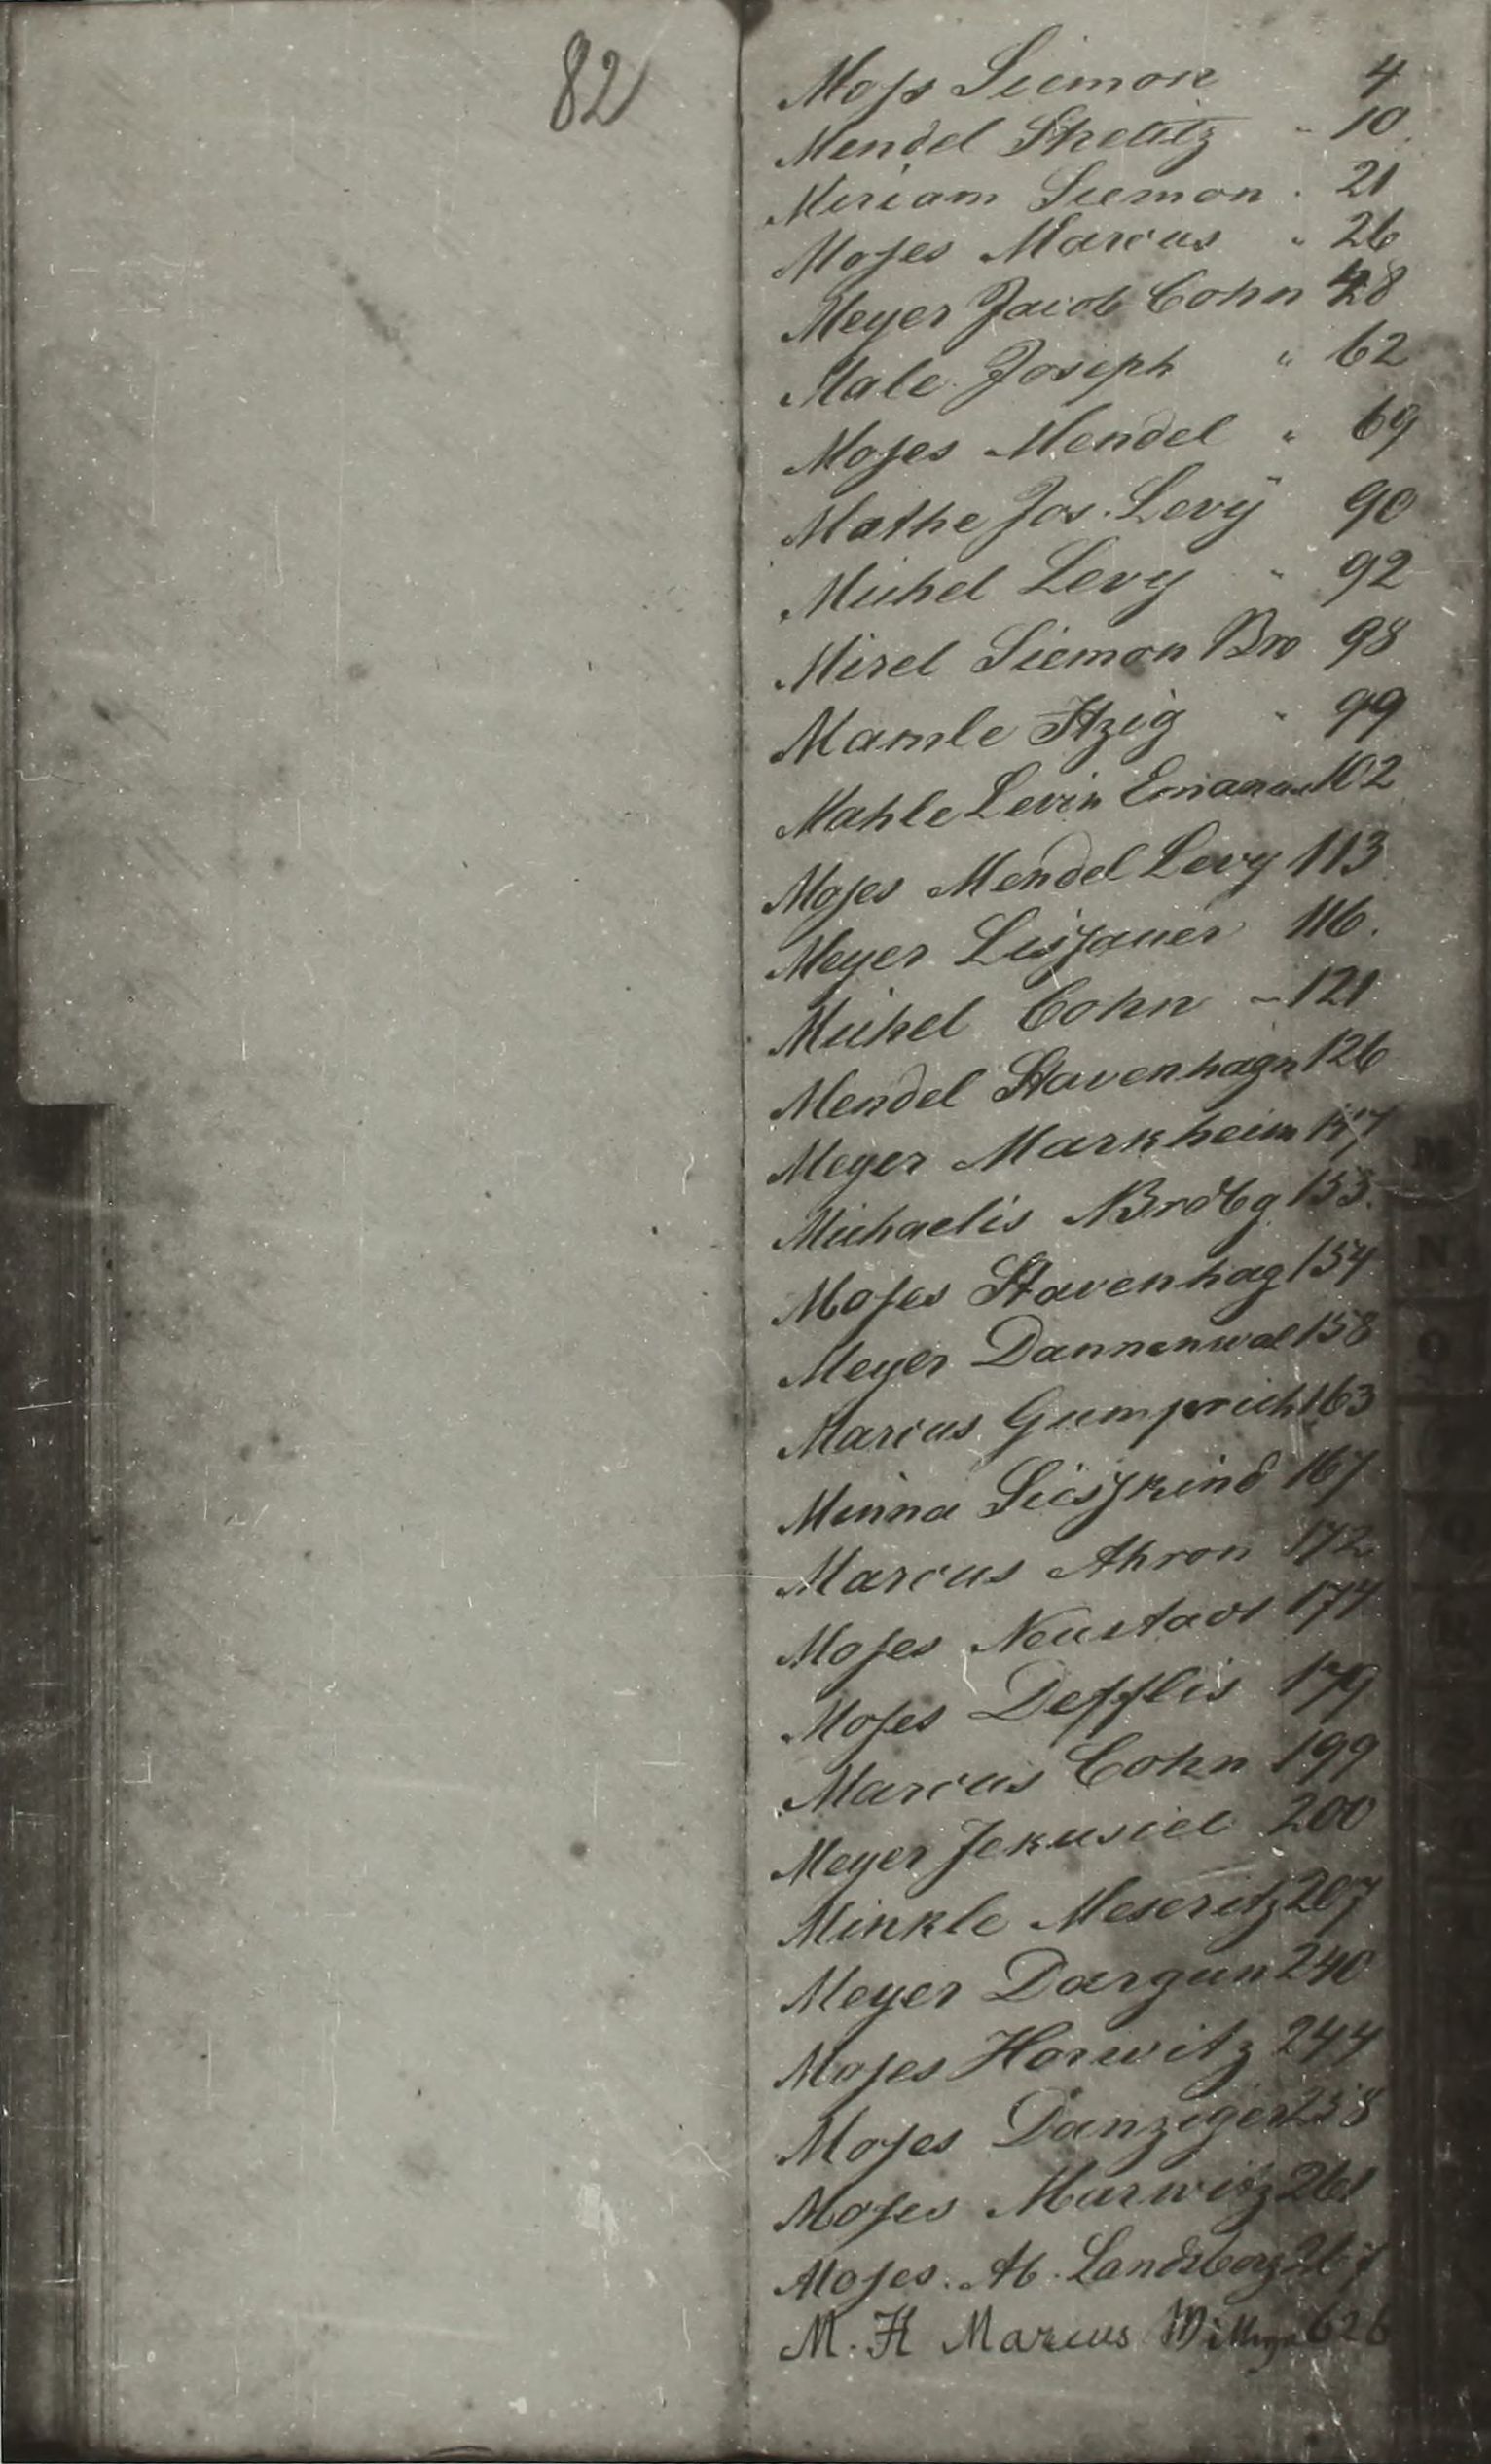 82
Moses Siemon 4
Mendel Strelitz " 10.
Miriam Siemon . 21
Moses Marcus " 26
Meyer Jacob Cohn 48
Male Joseph " 62
Moses Mendel " 69
Mathe Jos. Levÿ 90
Michel Levy " 92
Mirel Siemon Bro 98
Mamle Itzig " 99
Mahle Levin Emanuel 102
Moses Mendel Levy 113
Meyer Lissauer 116.
Michel Cohn - 121
Mendel Stavenhagn 126
Meyer Markheim
Michaelis NBrdbg 153.
Moses Stavenhag 154
Meyer Dannenwal 158
Marcus Gumprich 163
Minna Süsskind 167
Marcus Ahron 172
Moses Neustadt 174
Moses Desslis 179
Marcus Cohn 199
Meyer Jekusiel 200
Minkle Meseritz 207
Meyer Dargun 240
Moses Horwitz 244
Moses Danziger 258
Moses Murwitz 261
Moses. Ab. Landsberg 267
M. H Marcus 626
M
N
O